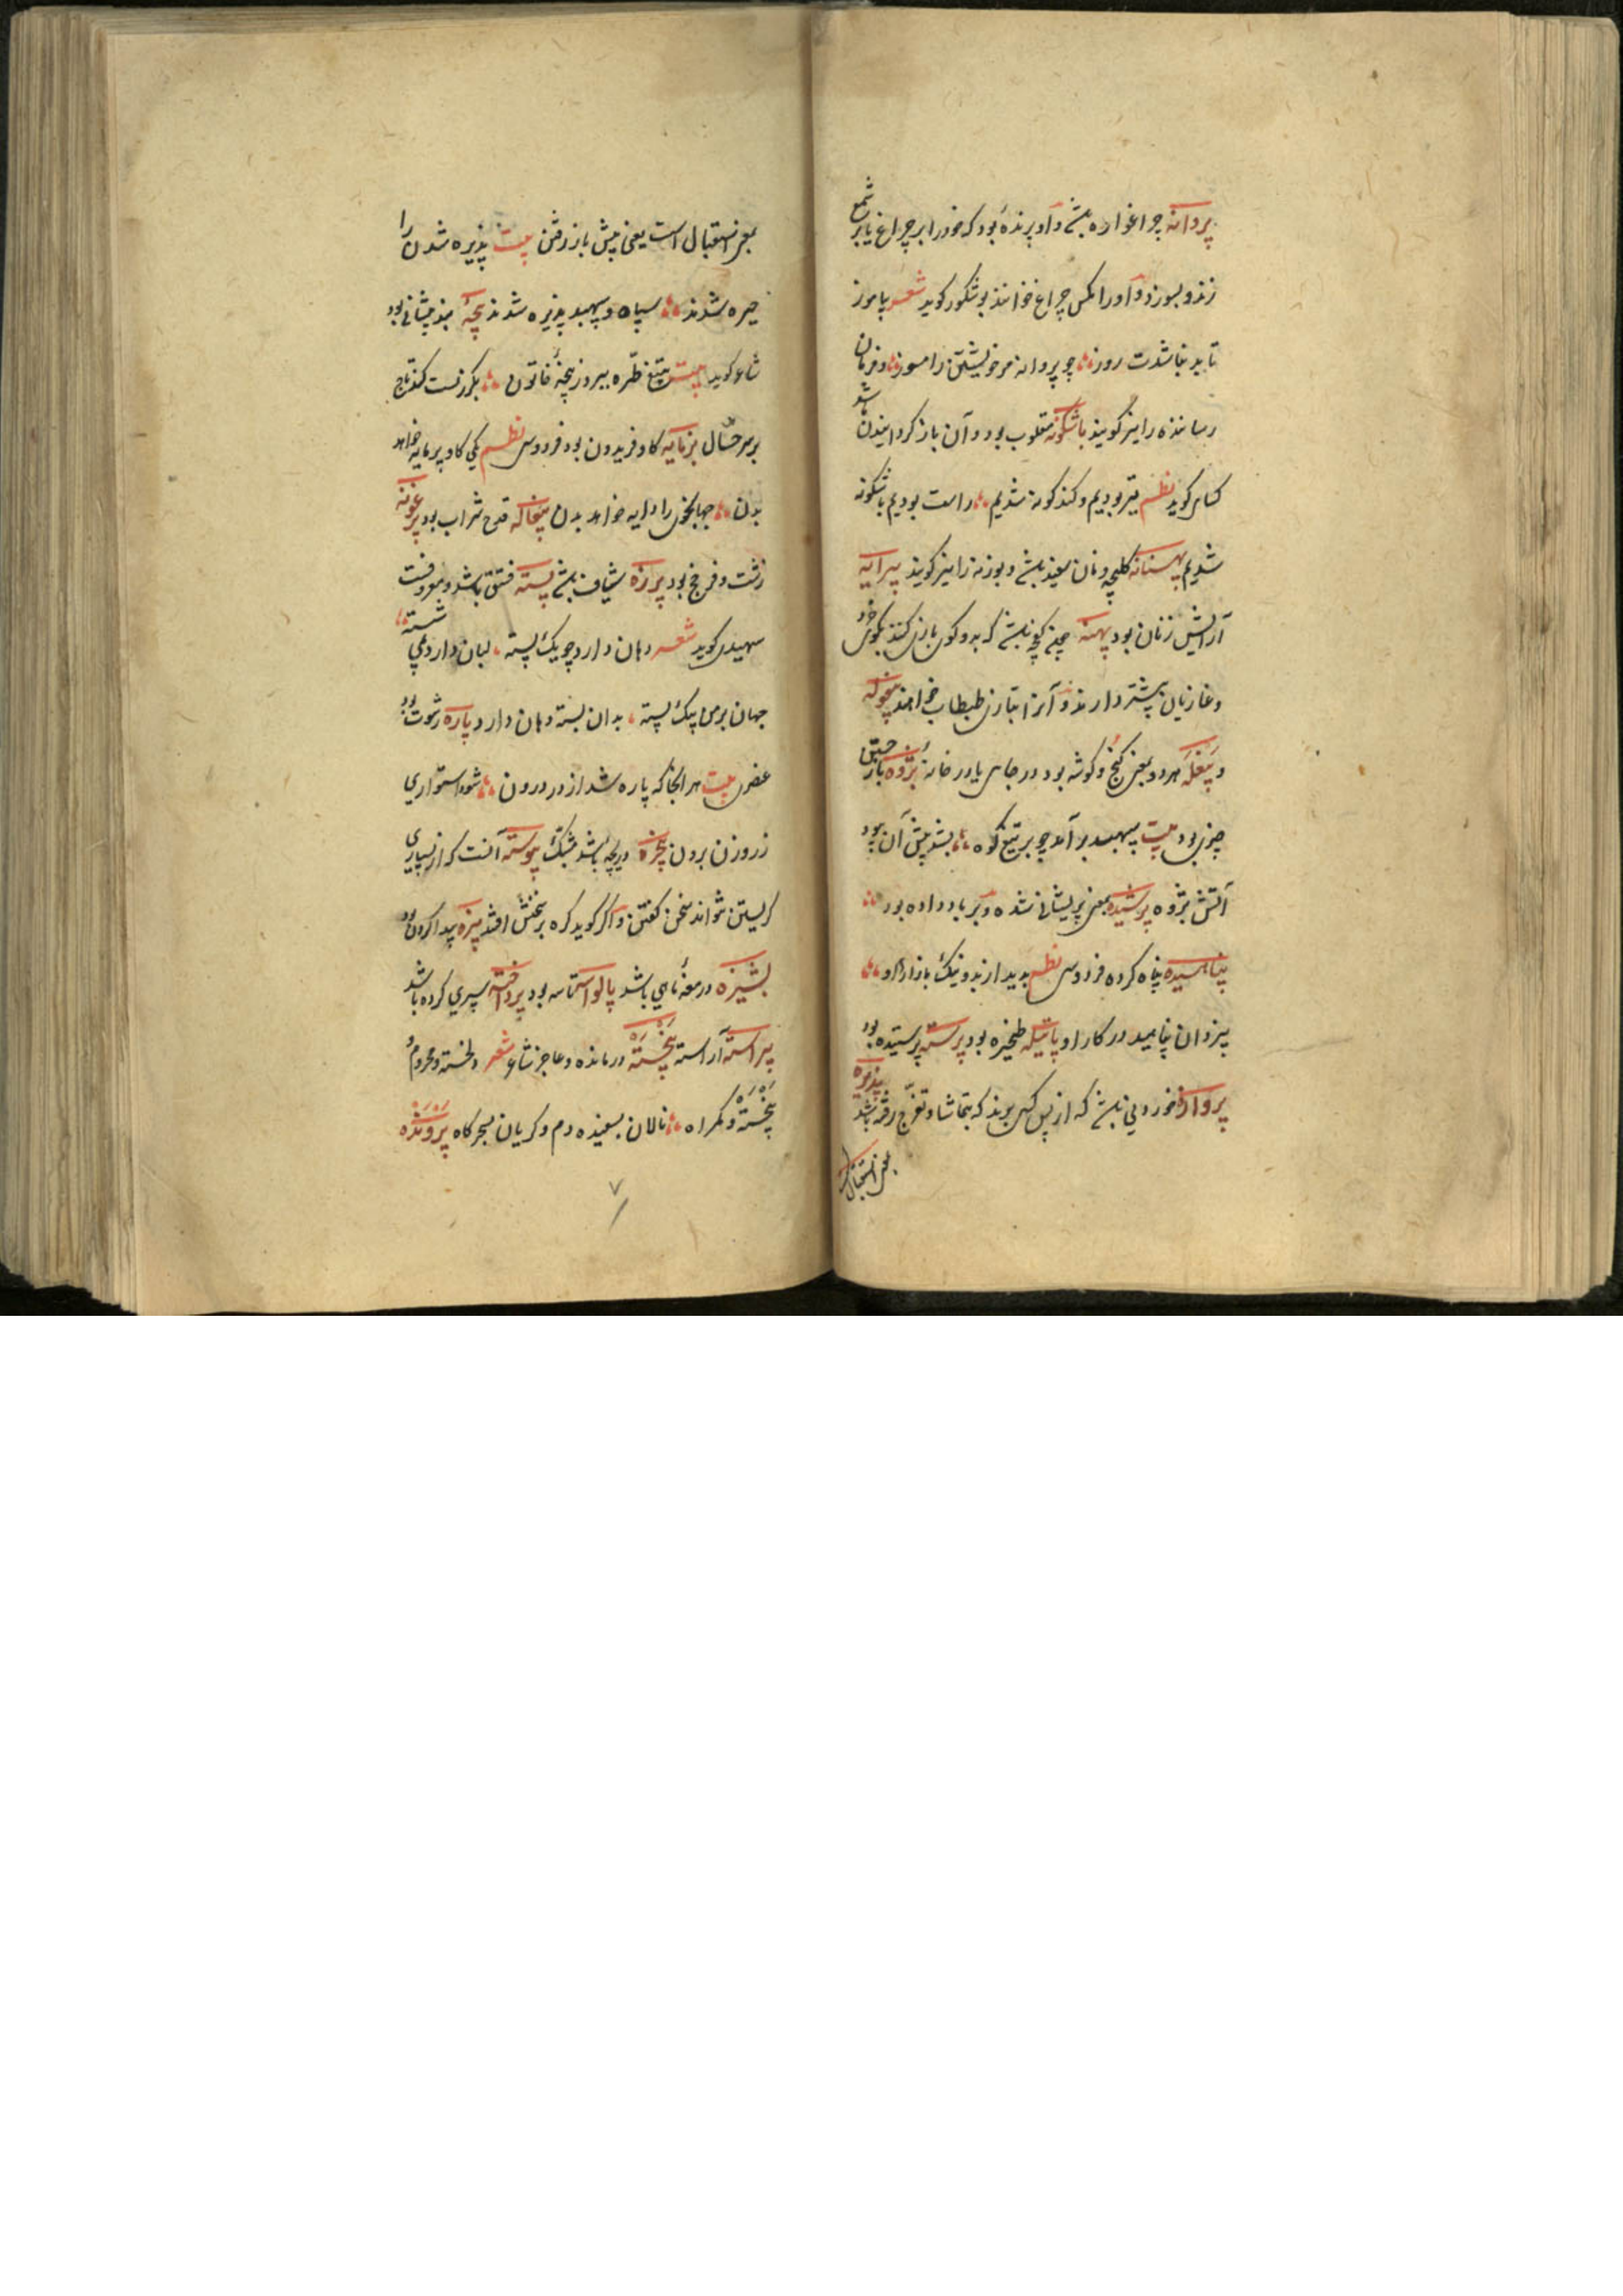 پروانه چراغواره باشد و او پرندهٔ بود که خود را بر چراغ یا بر شمع
زند و بسوزد و او را مکس چراغ خوانند بو شکور کوید شعر بیاموز
تا بد نباشدت روز چو پروانه مر خویشتن را مسوز و فرمان
رساننده را نیز کویند باشکونه مقلوب بود و آن باز کردانیدن باشد
کسای کوید نظم تیر بودیم و کند کونه شدیم راست بودیم باشکونه
شدیم بهنانه کلیچه و نان سفید باشد و بوزنه را نیز کویند پیرایه
آرایش زنان بود پهنه کوی بازی کنند
و غازیان بیشتر دارند و آنرا بتازی طبطاب خوانند پیغوله
و پیغله هر دو بمعنی کنج و کوشه بود در جای یا در خانه پژوه
چیزی بود بیت سپهبد بر آمد چو بر تیغ کوه بشد پیش آن بود
آتش پژوه پریشیده بمعنی پریشانی شده و بر باد داده بود
پناهیده پناه کرده فردوسی نظم بدید از بد و نیک بازار او
بیزدان پناهید در کار او پاتیله طنجیره بود پرسته پرستیده بود
پروازه خوردنی باشد که از پس کسی برند که بتماشا و تفرج رفته باشد پذیره
بمعنی استقبال
بمعنی استقبال است یعنی پیش باز رفتن بیت پذیره شدن را
چیره شدند سپاه و سپهبد پذیره شدند پیچه بند پیشانی بود
شاعر کوید بیت بتیغ طره ببرد ز پیچهٔ خاتون بکرز پست کند تاج
بر سر چیپال پرمایه کاو فریدون بود فردوسی نظم یکی کاو پرمایه خواهد
بدن جهانجوی را دایه خواهد بدن پیغاله قدح شراب بود پرغونه
زشت و فرخج بود پرزه شیاف باشد پسته فستق باشد و معروفست
سهیدی کوید شعر دهان دارد چو یک پسته لبان دارد بمی شسته
جهان بر من پیک پسته بدان بسته دهان دارد پاره رشوت بود
عضوی بیت هر آنجا که پاره شد از در درون شود استواری
ز روزن برون پنجره دریچه باشد مشبک پیوسته آنست که از بسیاری
کریستن نتواند سخن کفتن و اکر کوید کره بر سخنش افتد پیزه پیدا کردن بود
پشیزه درمغهٔ ماهی باشد پالواسه تاسه بود پرداخته سپری کرده باشد
پیراسته آراسته پیخسته درمانده و عاجز شاعر شعر دلخسته و محروم و
پیخسته و کمراه نالان بسفیده دم و کریان بسحرکاه پرونده
۷